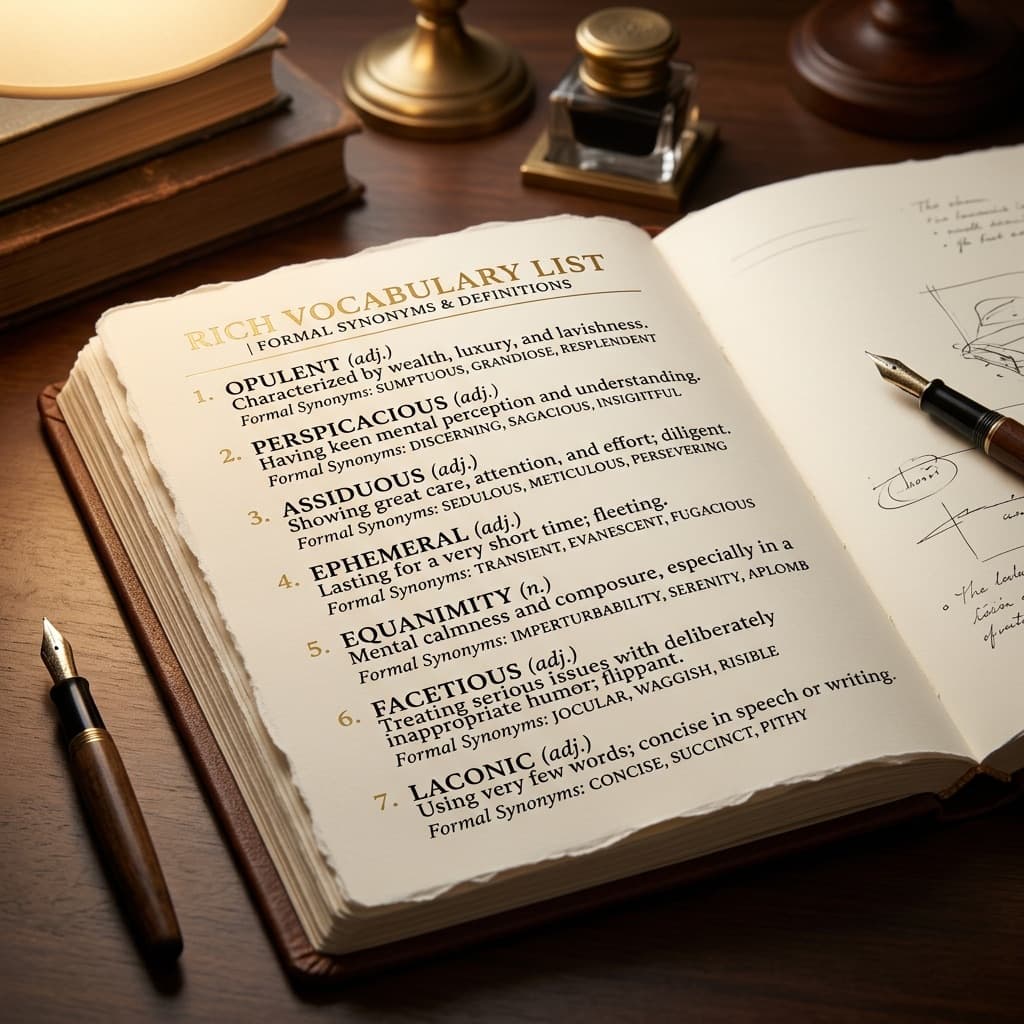 RICH VOCABULARY LIST
| FORMAL SYNONYMS & DEFINITIONS
1. OPULENT (adj.)
Characterized by wealth, luxury, and lavishness.
Formal Synonyms: SUMPTUOUS, GRANDIOSE, RESPLENDENT
2. PERSPICACIOUS (adj.)
Having keen mental perception and understanding.
Formal Synonyms: DISCERNING, SAGACIOUS, INSIGHTFUL
3. ASSIDUOUS (adj.)
Showing great care, attention, and effort; diligent.
Formal Synonyms: SEDULOUS, METICULOUS, PERSEVERING
4. EPHEMERAL (adj.)
Lasting for a very short time; fleeting.
Formal Synonyms: TRANSIENT, EVANESCENT, FUGACIOUS
5. EQUANIMITY (n.)
Mental calmness and composure, especially in a
Formal Synonyms: IMPERTURBABILITY, SERENITY, APLOMB
6. FACETIOUS (adj.)
Treating serious issues with deliberately
inappropriate humor; flippant.
Formal Synonyms: JOCULAR, WAGGISH, RISIBLE
7. LACONIC (adj.)
Using very few words; concise in speech or writing.
Formal Synonyms: CONCISE, SUCCINCT, PITHY
The
The